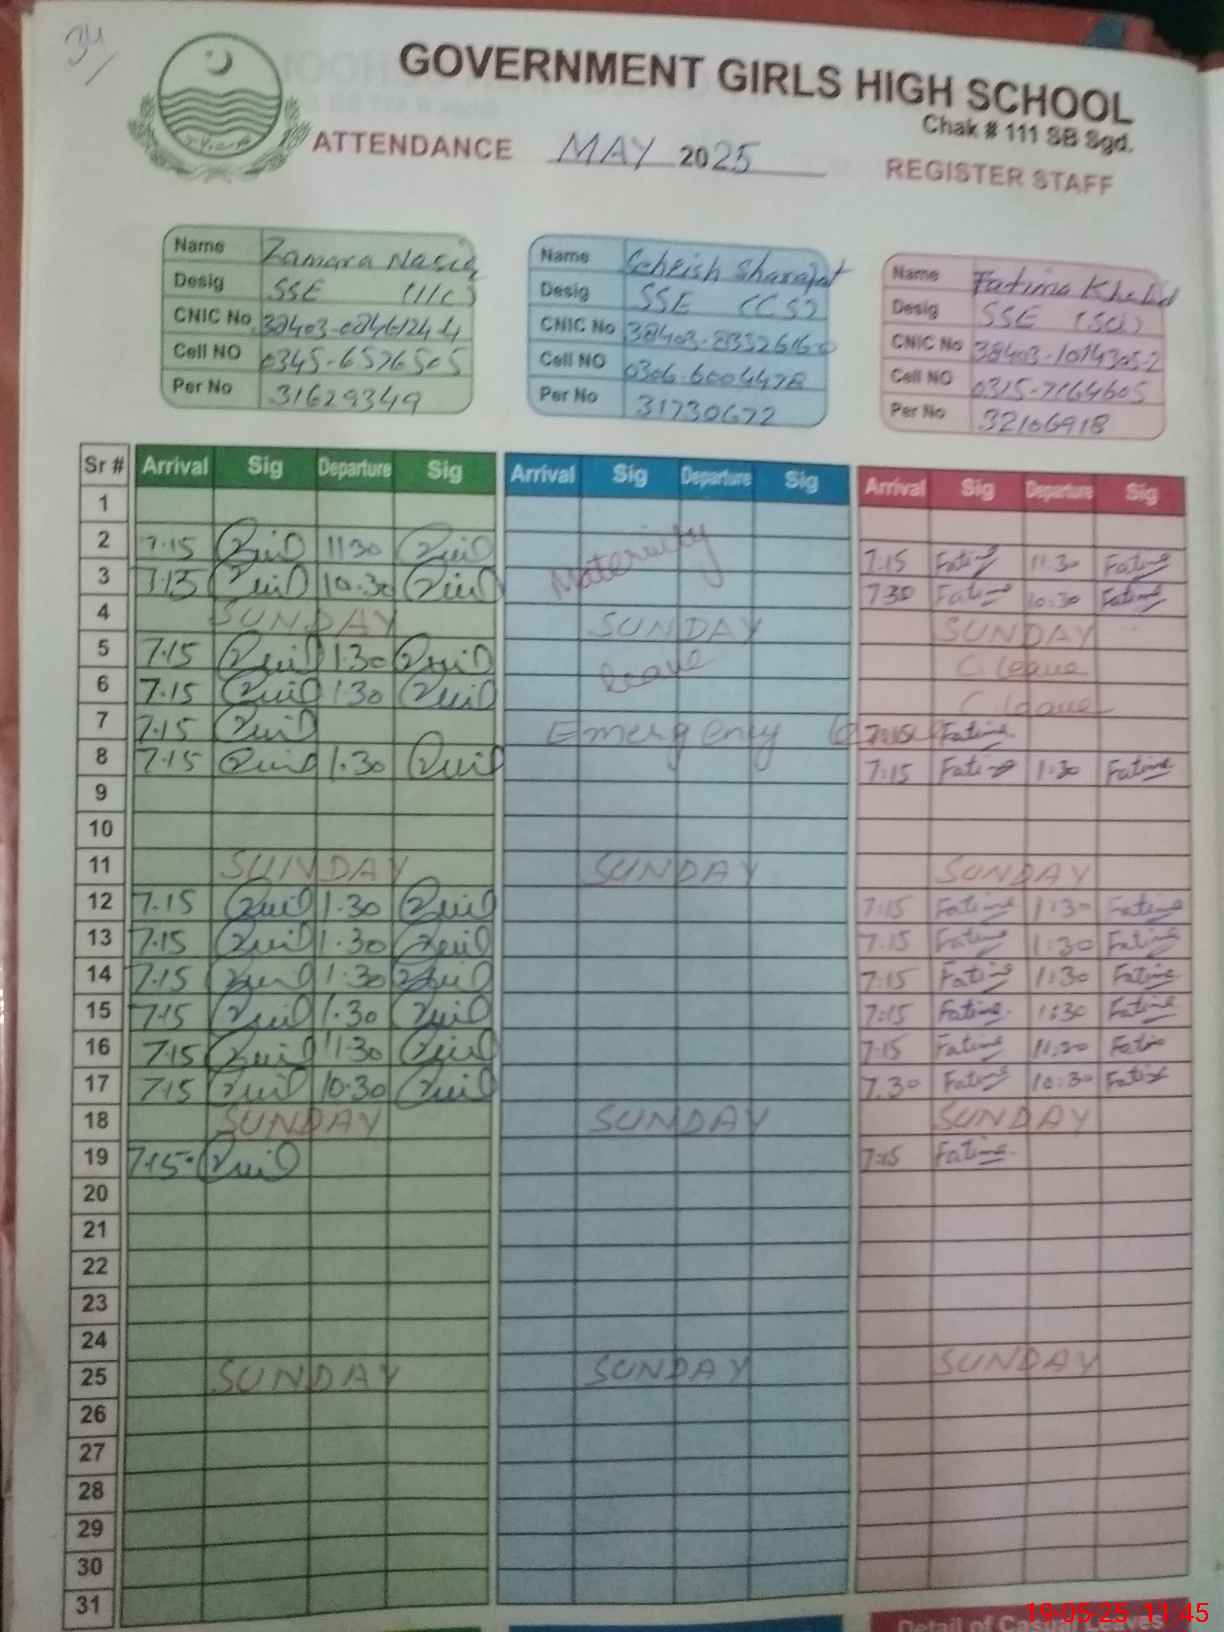 GOVERNMENT GIRLS HIGH SCHOOL
Chak # 111 SB Sgd.
ATTENDANCE MAY 2025 REGISTER STAFF
Name Zamara
Desig SSE
CNIC No
Cell NO 0345-6576505
Per No 31629349
Name Sharafat
Desig SSE (CS)
CNIC No
Cell NO 0306-6004478
Per No 31730672
Name Fatima Khalid
Desig SSE (Sci)
CNIC No
Cell NO 0315-7164605
Per No 32106918
Sr # Arrival Sig Departure Sig Arrival Sig Departure Sig Arrival Sig Departure Sig
1
2 7.15 11 30 Maternity 7.15 Fatima 11.30 Fatima
3 7.15 10.30 7 30 Fatima 10:30 Fatima
4 SUNDAY SUNDAY SUNDAY
5 7.15 1.30 leave C. leave
6 7.15 1.30 C leave
7 7.15 Emergency Fatima
8 7.15 1.30 7:15 Fatima 1:30 Fatima
9
10
11 SUNDAY SUNDAY SUNDAY
12 7.15 1.30 7:15 Fatima 1:30 Fatima
13 7.15 1.30 7.15 Fatima 1:30 Fatima
14 7.15 1.30 7:15 Fatima 1:30 Fatima
15 7.15 1.30 7:15 Fatima 1:30 Fatima
16 7.15 11.30 7.15 Fatima 11:30 Fatima
17 7.15 10.30 7.30 Fatima 10:30 Fatima
18 SUNDAY SUNDAY SUNDAY
19 7.15 7:15 Fatima
20
21
22
23
24
25 SUNDAY SUNDAY SUNDAY
26
27
28
29
30
31
Detail of Casual Leaves
19-05-25 11:45